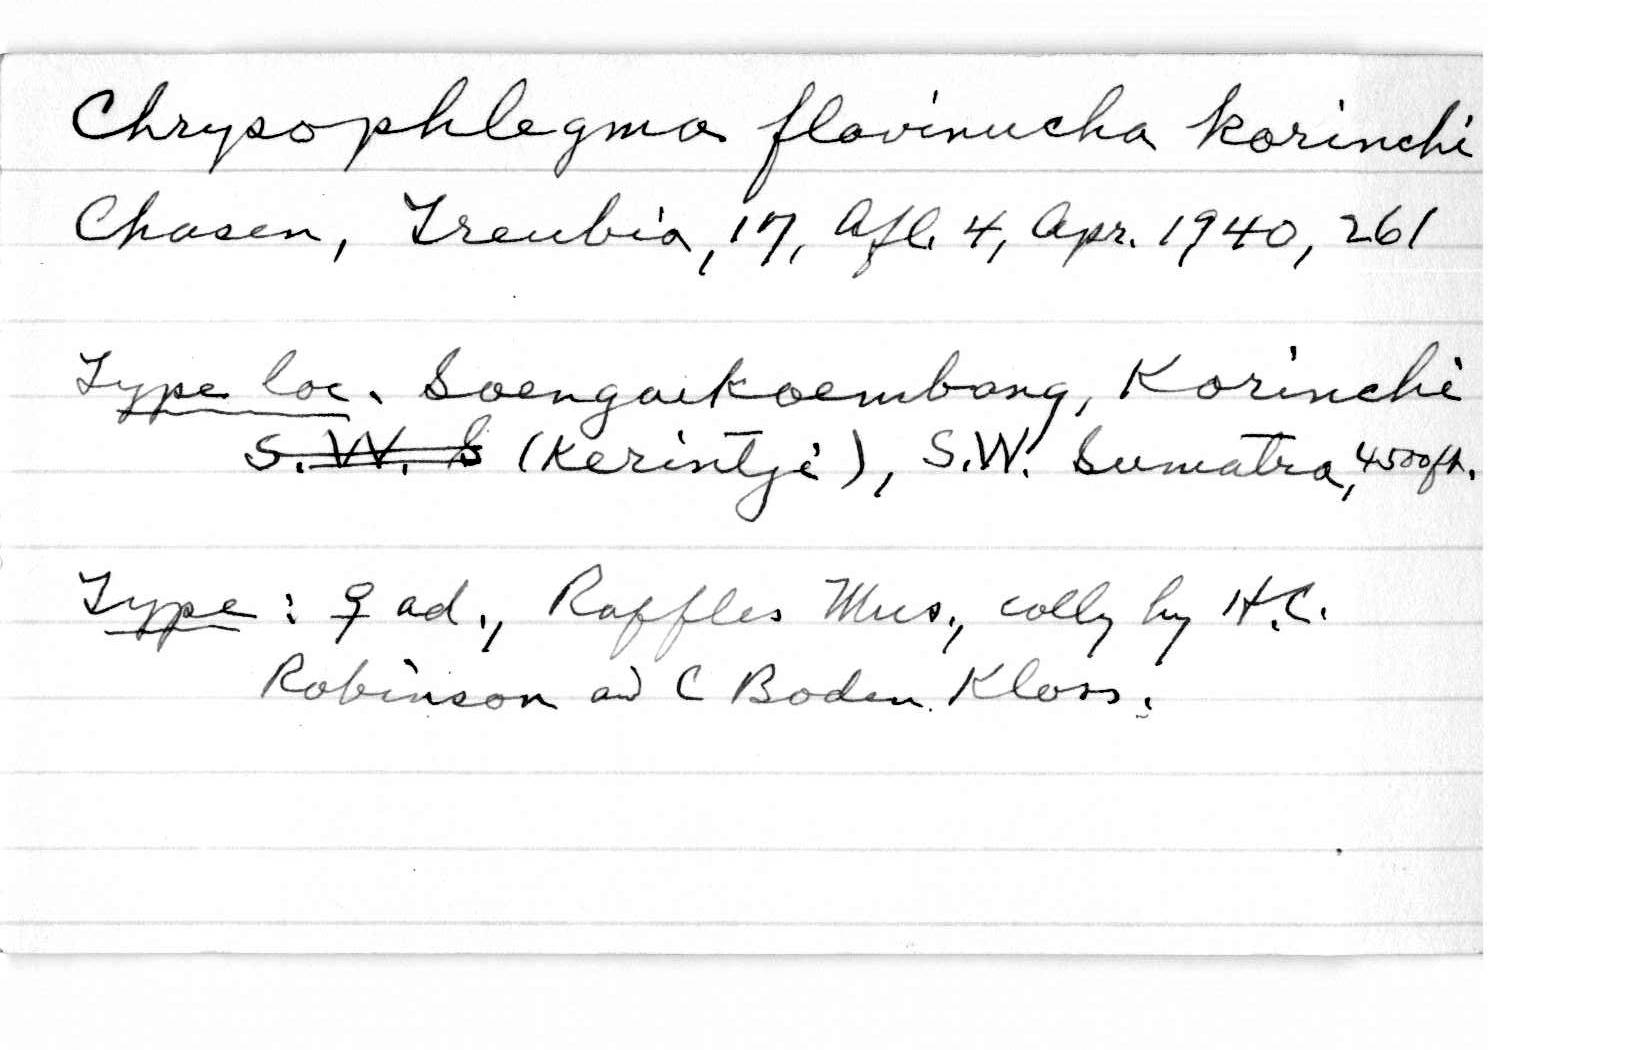 Chrysophlegma flavinucha korinchi
Chasen, Treubia, 17, Afl. 4, Apr. 1940, 261
Type loc. Soengaikoembang, Korinchi
S.W. S (Kerintji), S.W. Sumatra, 4500ft.
Type: ♀ ad., Raffles Mus., colly by H.C.
Robinson and C Boden Kloss.